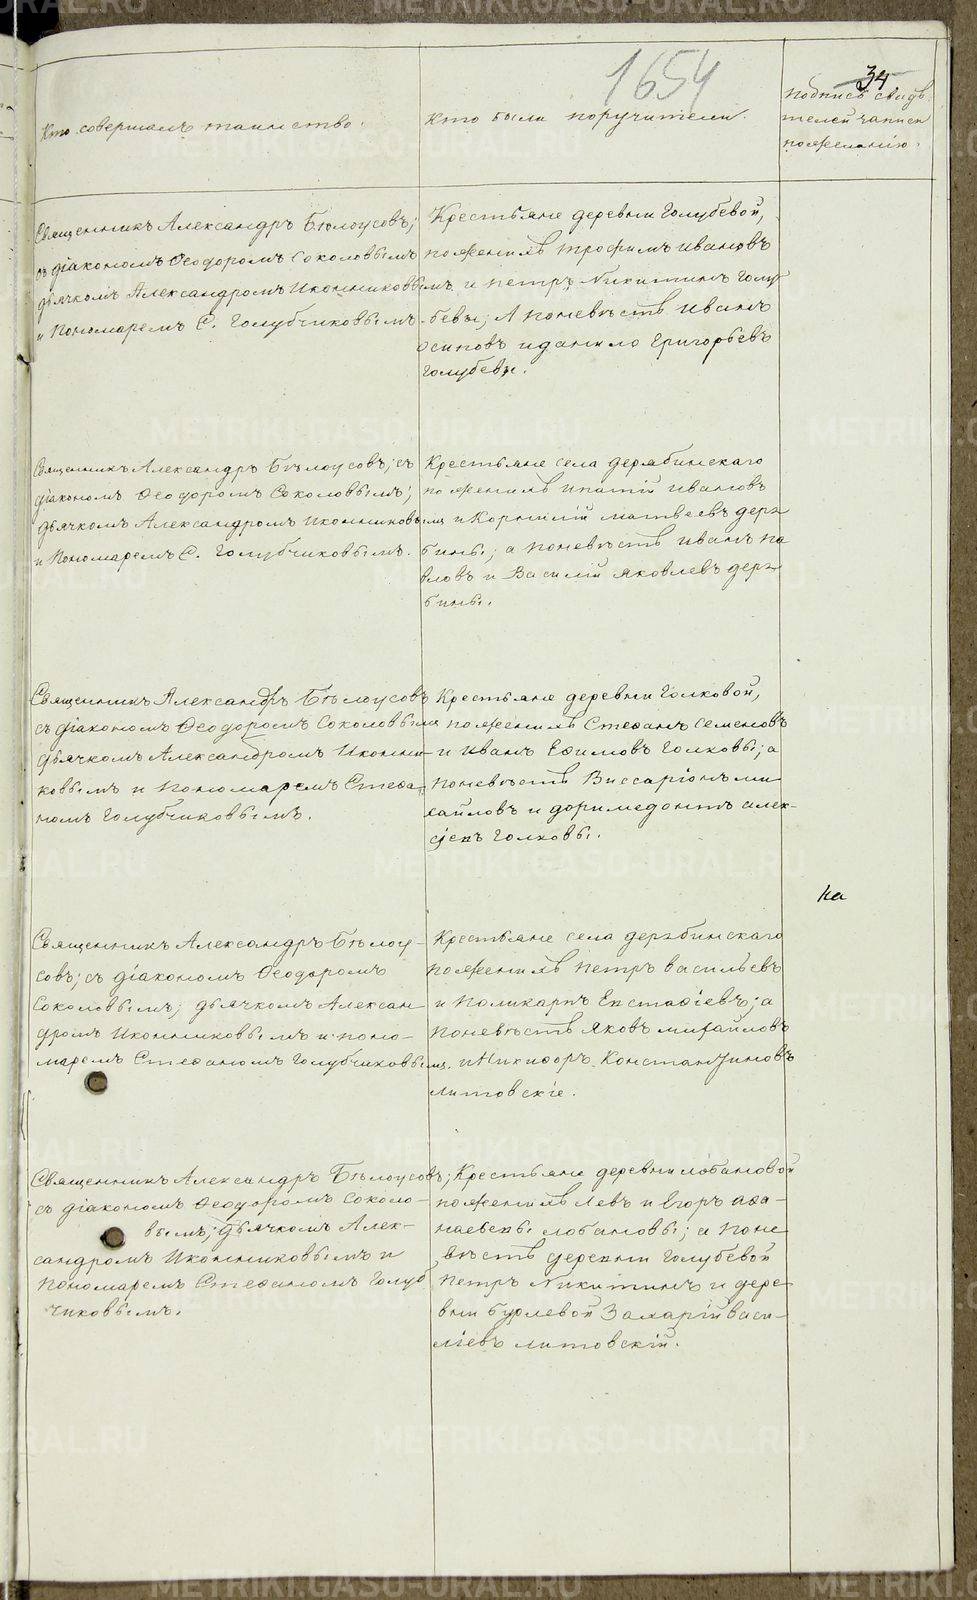 1654
34
Кто совершалъ таинство.
Кто были поручители.
Подпись свидѣ-
телей записи
по желанію.
Священникъ Александръ Бѣлоусовъ;
съ діакономъ Ѳеодоромъ Соколовымъ
дьячкомъ Александромъ Иконниковымъ
и Пономаремъ С. Голубчиковымъ.
Крестьяне деревни Голубевой,
по женихѣ Трофимъ Ивановъ
и Петръ Никитинъ Голу-
бевы; А по невѣстѣ Иванъ
Осиповъ и Данило Григорьевъ
Голубевы.
Священникъ Александръ Бѣлоусовъ; съ
діакономъ Ѳеодоромъ Соколовымъ;
дьячкомъ Александромъ Иконниковымъ
и Пономаремъ С. Голубчиковымъ.
Крестьяне села Дерябинскаго
по женихѣ Ипатій Ивановъ
и Корнилій Матвеевъ Деря-
бины; а по невѣстѣ Иванъ Па
вловъ и Василій Яковлевъ Деря-
бины.
Священникъ Александръ Бѣлоусовъ
съ діакономъ Ѳеодоромъ Соколовымъ
дьячкомъ Александромъ Иконни-
ковымъ и Пономаремъ Стефа-
номъ Голубчиковымъ.
Крестьяне деревни Голковой,
по женихѣ Стефанъ Семеновъ
и Иванъ Ефимовъ Голковы; а
по невѣстѣ Виссаріонъ Ми
хайловъ и Доримедонтъ Алек-
сѣевъ Голковы.
На
Священникъ Александръ Бѣлоу-
совъ; съ діакономъ Ѳеодоромъ
Соколовымъ; дьячкомъ Алексан-
дромъ Иконниковымъ и поно-
маремъ Стефаномъ Голубчиковымъ.
Крестьяне села Дерябинскаго
по женихѣ Петръ Васильевъ
и Поликарпъ Евстафіевъ; а
по невѣстѣ Яковъ Михайловъ
и Никифоръ Константиновъ
Литовскіе.
Священникъ Александръ Бѣлоусовъ;
съ діакономъ Ѳеодоромъ Соколо-
вымъ; дьячкомъ Алек-
сандромъ Иконниковымъ и
Пономаремъ Стефаномъ Голуб
чиковымъ.
Крестьяне деревни Лобановой
по женихѣ Левъ и Егоръ Афа-
насьевы Лобановы; а по не
вѣстѣ деревни Голубевой
Петръ Никитинъ и дере-
вни Бурлевой Захарій Васи-
ліевъ Литовскій.
METRIKI.GASO-URAL.RU